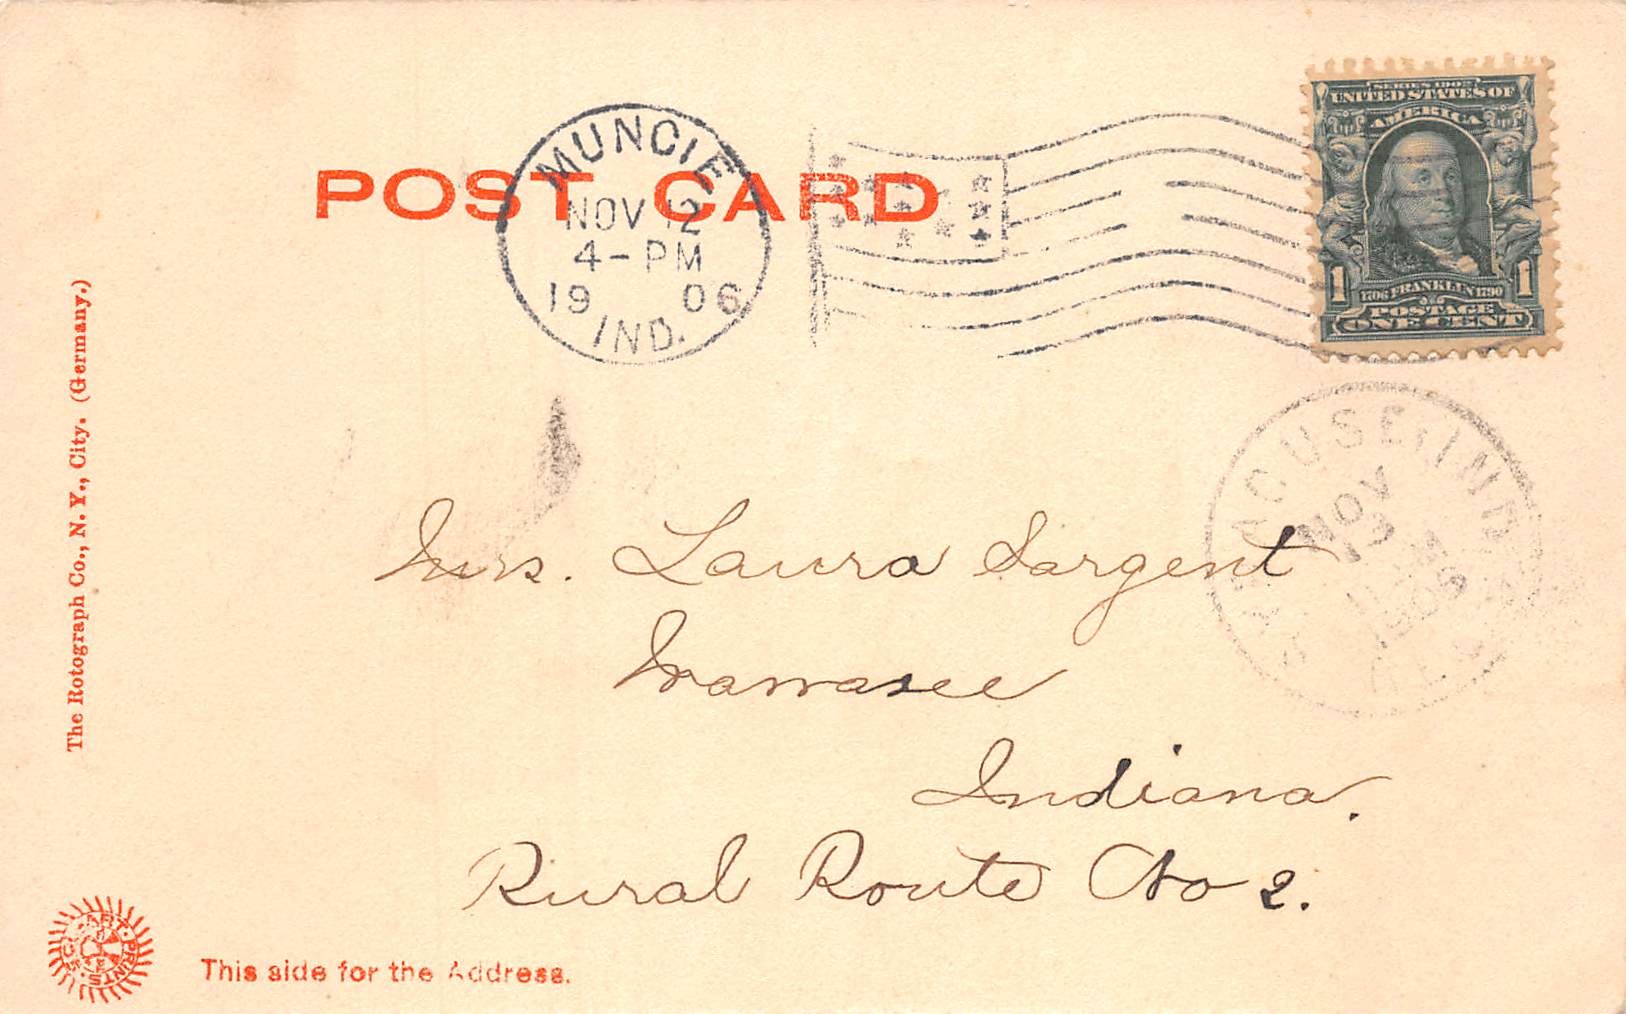 POST CARD
MUNCIE
NOV 12
4-PM
19 06
IND.
SERIES 1902
UNITED STATES OF
AMERICA
1 1
1706 FRANKLIN 1790
POSTAGE
ONE CENT
SYRACUSE, IND.
NOV
13
11 AM
1906
REC'D
Mrs. Laura Sargent
Wawasee
Indiana.
Rural Route No 2.
The Rotograph Co., N. Y., City. (Germany.)
ART PRINTS
This side for the Address.